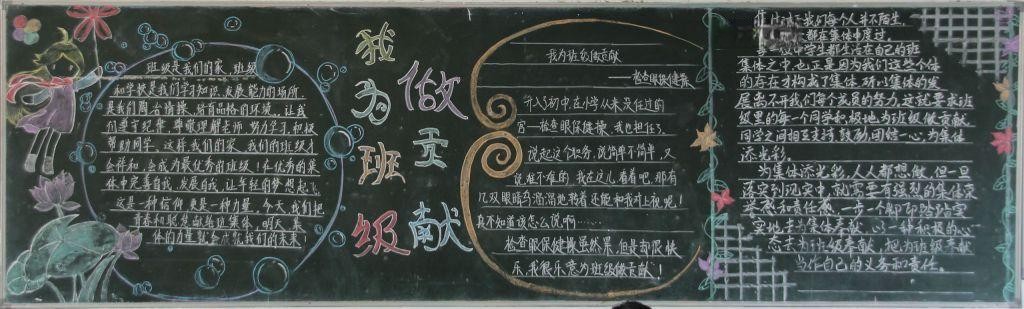 班级是我们的家 班级
和学校是我们学习知识、发展能力的场所
是我们陶冶情操、培育品格的环境。让我
们遵守纪律,尊敬理解老师,努力学习,积极
帮助同学。这样我们的家、我们的班级才
会祥和,会成为最优秀的班级!在优秀的集
体中完善自我,发展自我,让年轻的梦想起飞
这是一种信仰更是一种力量,今天,我们把
青春和
献给班集体,明天,集
体的力量就会
我们的未来!
我为班级
做贡献
我为班级做贡献
——检查眼保健操
升入初中,在小学从未没任过的
官—检查眼保健操,我也担任了。
说起这个职务,说简单不简单,又
说难不难的,我在这儿看着吧,那有
几双眼睛乌溜溜地看着还能和我对上视呢!
真不知道该怎么说啊……
检查眼保健操虽然累,但是却很快
乐,我很乐意为班级做贡献!
对于我们每个人并不陌生,
都在集体中度过,
学生都生活在自己的班
集体之中,也正是因为我们这些个体
的存在才构成了集体,所以集体的发
展离不开我们每个成员的努力,这就要求班
级里的每一个同学积极地为班级做贡献
同学之间相互支持鼓励,团结一心,为集体
添光彩。
为集体添光彩,人人都想做,但一旦
落实到现实中,就需要有强烈的集体荣
誉感和责任感,一步一个脚印踏踏实
实地去为集体奉献,以一种积极的心
态去为班级奉献,把为班级奉献
当作自己的义务和责任。